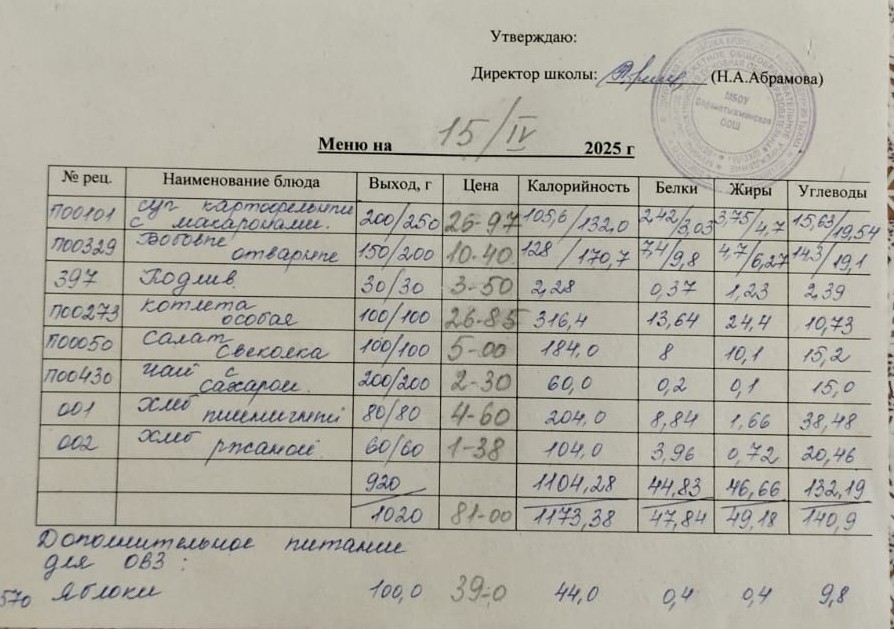 Утверждаю:
Директор школы: (Н.А.Абрамова)
МБОУ
ООШ
Меню на 15/IV 2025 г
№ рец. Наименование блюда Выход, г Цена Калорийность Белки Жиры Углеводы
П00101 суп картофельный с макаронами. 200/250 26-97 105,6/132,0 2,42/3,03 3,75/4,7 15,63/19,54
П00329 Бобовые отварные 150/200 10-40 128/170,7 7,4/9,8 4,7/6,27 14,3/19,1
397 Подлив. 30/30 3-50 2,28 0,37 1,23 2,39
П00273 котлета особая 100/100 26-85 316,4 13,64 24,4 10,73
П00050 Салат Свеколка 100/100 5-00 184,0 8 10,1 15,2
П00430 чай с сахаром. 200/200 2-30 60,0 0,2 0,1 15,0
001 Хлеб пшеничный 80/80 4-60 204,0 8,84 1,66 38,48
002 Хлеб ржаной. 60/60 1-38 104,0 3,96 0,72 20,46
920 1104,28 44,83 46,66 132,19
1020 81-00 1173,38 47,84 49,18 140,9
Дополнительное питание
для ОВЗ:
570 Яблоки 100,0 39-0 44,0 0,4 0,4 9,8